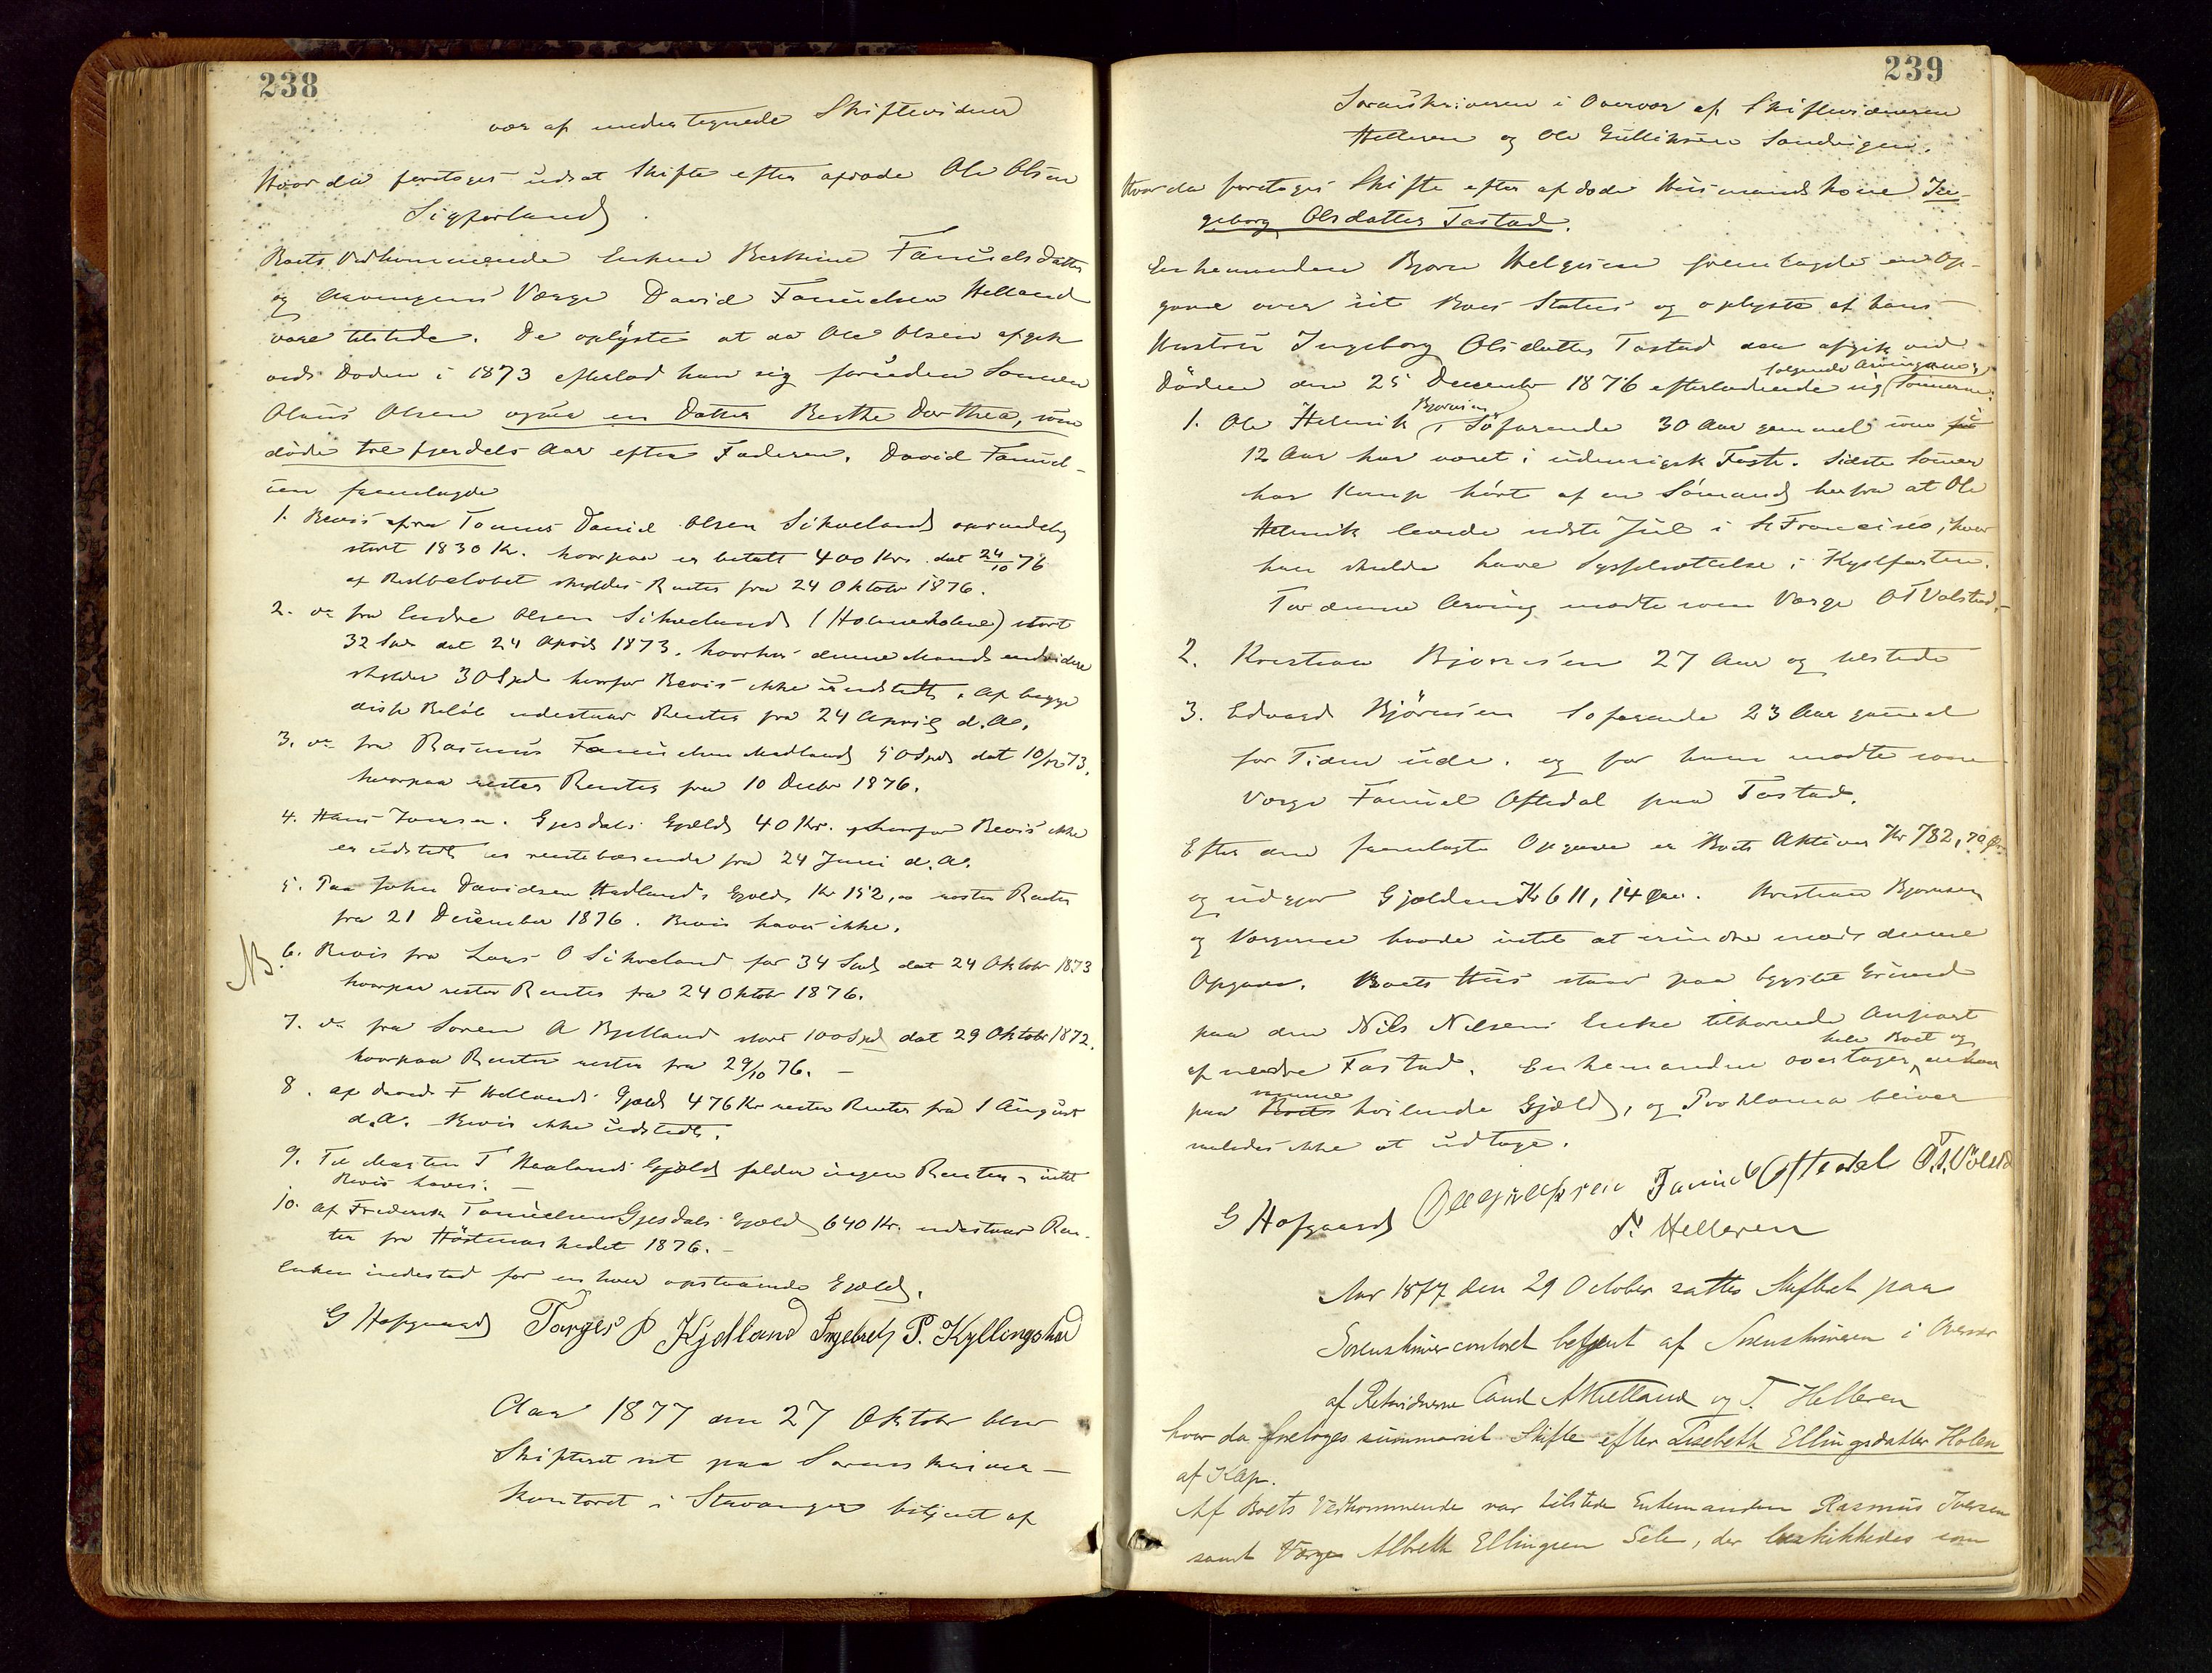 238
vær af undertegnede Skiftevidner
Hvor da foretoges udsat Skifte efter afdøde Ole Olsen
Sigførland
Boets Vedkommende Enken Berthine Fanuelsdatter
og Arvingens Værge David Fanuelsen Helland
vare tilstede. De oplyste at da Ole Olsen afgik
ved Døden i 1873 efterlod han sig foruden Sønnen
Olaus Olsen ogsaa en Datter Berthe Dorthea, som
døde tre fjerdels Aar efter Faderen. David Fanuel-
sen fremlagde
1. Bevis fra Tønnes Daniel Olsen Sikveland oprindelig
stort 1830 Kr. hvorpaa er betalt 400 Kr. dat 24/10 76
af Restbeløbet skyldes Renter fra 24 Oktobr 1876.
2. do fra Endre Olsen Sikveland (Holmeholme) stort
32 Spd dat 24 April 1873. hvorhos denne Mand endvidere
skylder 30 Spd hvorfor Bevis ikke er udstedt. Af begge
disse Beløb udestaar Renter fra 24 April d.A.
3. do fra Rasmus Fanuelsen Madland 50 Spd dat 10/12 73,
hvorpaa rester Renter fra 10 Decbr 1876.
4. Hans Gjesdals Gjæld 40 Kr. hvorfor Bevis ikke
er udstedt er rentebærende fra 24 Juni d.A.
5. Paa John Davidsen Hadlands Gjæld Kr 152,00 rester Renter
fra 21 December 1876. Bevis haves ikke.
NB. 6. Bevis fra Lars O Sikveland for 34 Spd dat 24 Oktobr 1873
hvorpaa rester Renter fra 24 Oktobr 1876.
7. do fra Søren A Bjelland stort 100 Spd dat 29 Oktobr 1872.
hvorpaa Renter rester fra 29/10 76. —
8. af David F Hellands Gjæld 476 Kr rester Renter fra 1 August
d.A. Bevis ikke udstedt.
9. Til Morten T Haalands Gjæld falder ingen Renter, intet
Bevis haves. —
10. Af Frederik Fanuelsen Gjesdals Gjæld 640 Kr. udestaar Ren-
ter fra Høstmarkedet 1876. —
Enken indestod for enhver opstaaende Gjæld.
G Hofgaard Torges P Kjelland Ingebret P. Kyllingstad
Aar 1877 den 27 Oktobr blev
Skifteret sat paa Sorenskriver-
kontoret i Stavanger betjent af
239
Sorenskriveren i Overvær af Skiftevidnerne
Helleren og Ole Gulliksen Sandvigen.
Hvor da foretoges Skifte efter afdøde Huusmandskone In-
geborg Olsdatter Tastad.
Enkemanden Bjørn Helgesen fremlagde en Op-
gave over sit Boes Status og oplyste at hans
Hustru Ingeborg Olsdatter Tastad der afgik ved
følgende Arvinger
Døden den 25 December 1876 efterladende sig Sønnerne:
Bjørnsen
1. Ole Helmik Søfarende 30 Aar gammel som i
12 Aar har været i udenrigsk Fart. Sidste Sommer
har Komp hørt af en Sømand herfra at Ole
Helmik levede sidste Jul i St Francisco, hvor
han skulde have Sysselsættelse i Kystfarten.
For denne Arving mødte som Værge O T Volstad.
2. Kristian Bjørnsen 27 Aar og tilstede
3. Edvard Bjørnsen Søfarende 23 Aar gammel
for Tiden ude. og for ham mødte som
Værge Fanuel Oftedal paa Tastad.
Efter den fremlagte Opgave er Boets Aktiva Kr 782,70 Øre
og udgjør Gjælden Kr 611, 14 Øre. Kristian Bjørnsen
og Værgerne havde intet at erindre mod denne
Opgave. Boets Huus staar paa bygslet Grund
paa den Nils Nilsens Enke tilhørende Anpart
hele Boet og
af nedre Tastad. Enkemanden overtager enhver
samme
paa Boets hvilende Gjæld, og Proklama bliver
saaledes ikke at udtage.
G Hofgaard Ole Gulliksen Fanuel Oftedal O.T. Volstad
T. Helleren
Aar 1877 den 29 October sattes Skifteret paa
Sorenskrivercontoret betjent af Sorenskriveren i Overvær
af Retsvidnerne Cand A Kielland og T. Helleren
hvor da foretoges summarisk Skifte efter Lisebeth Ellingsdatter Holen
af Klep.
Af Boets Vedkommende var tilstede Enkemanden Rasmus Iversen
samt Værge Albreth Ellingsen Sele, der beskikkedes som